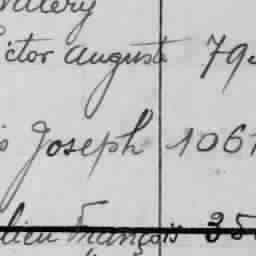 Valery
ictor Auguste 79
Joseph 1061
lien François 35